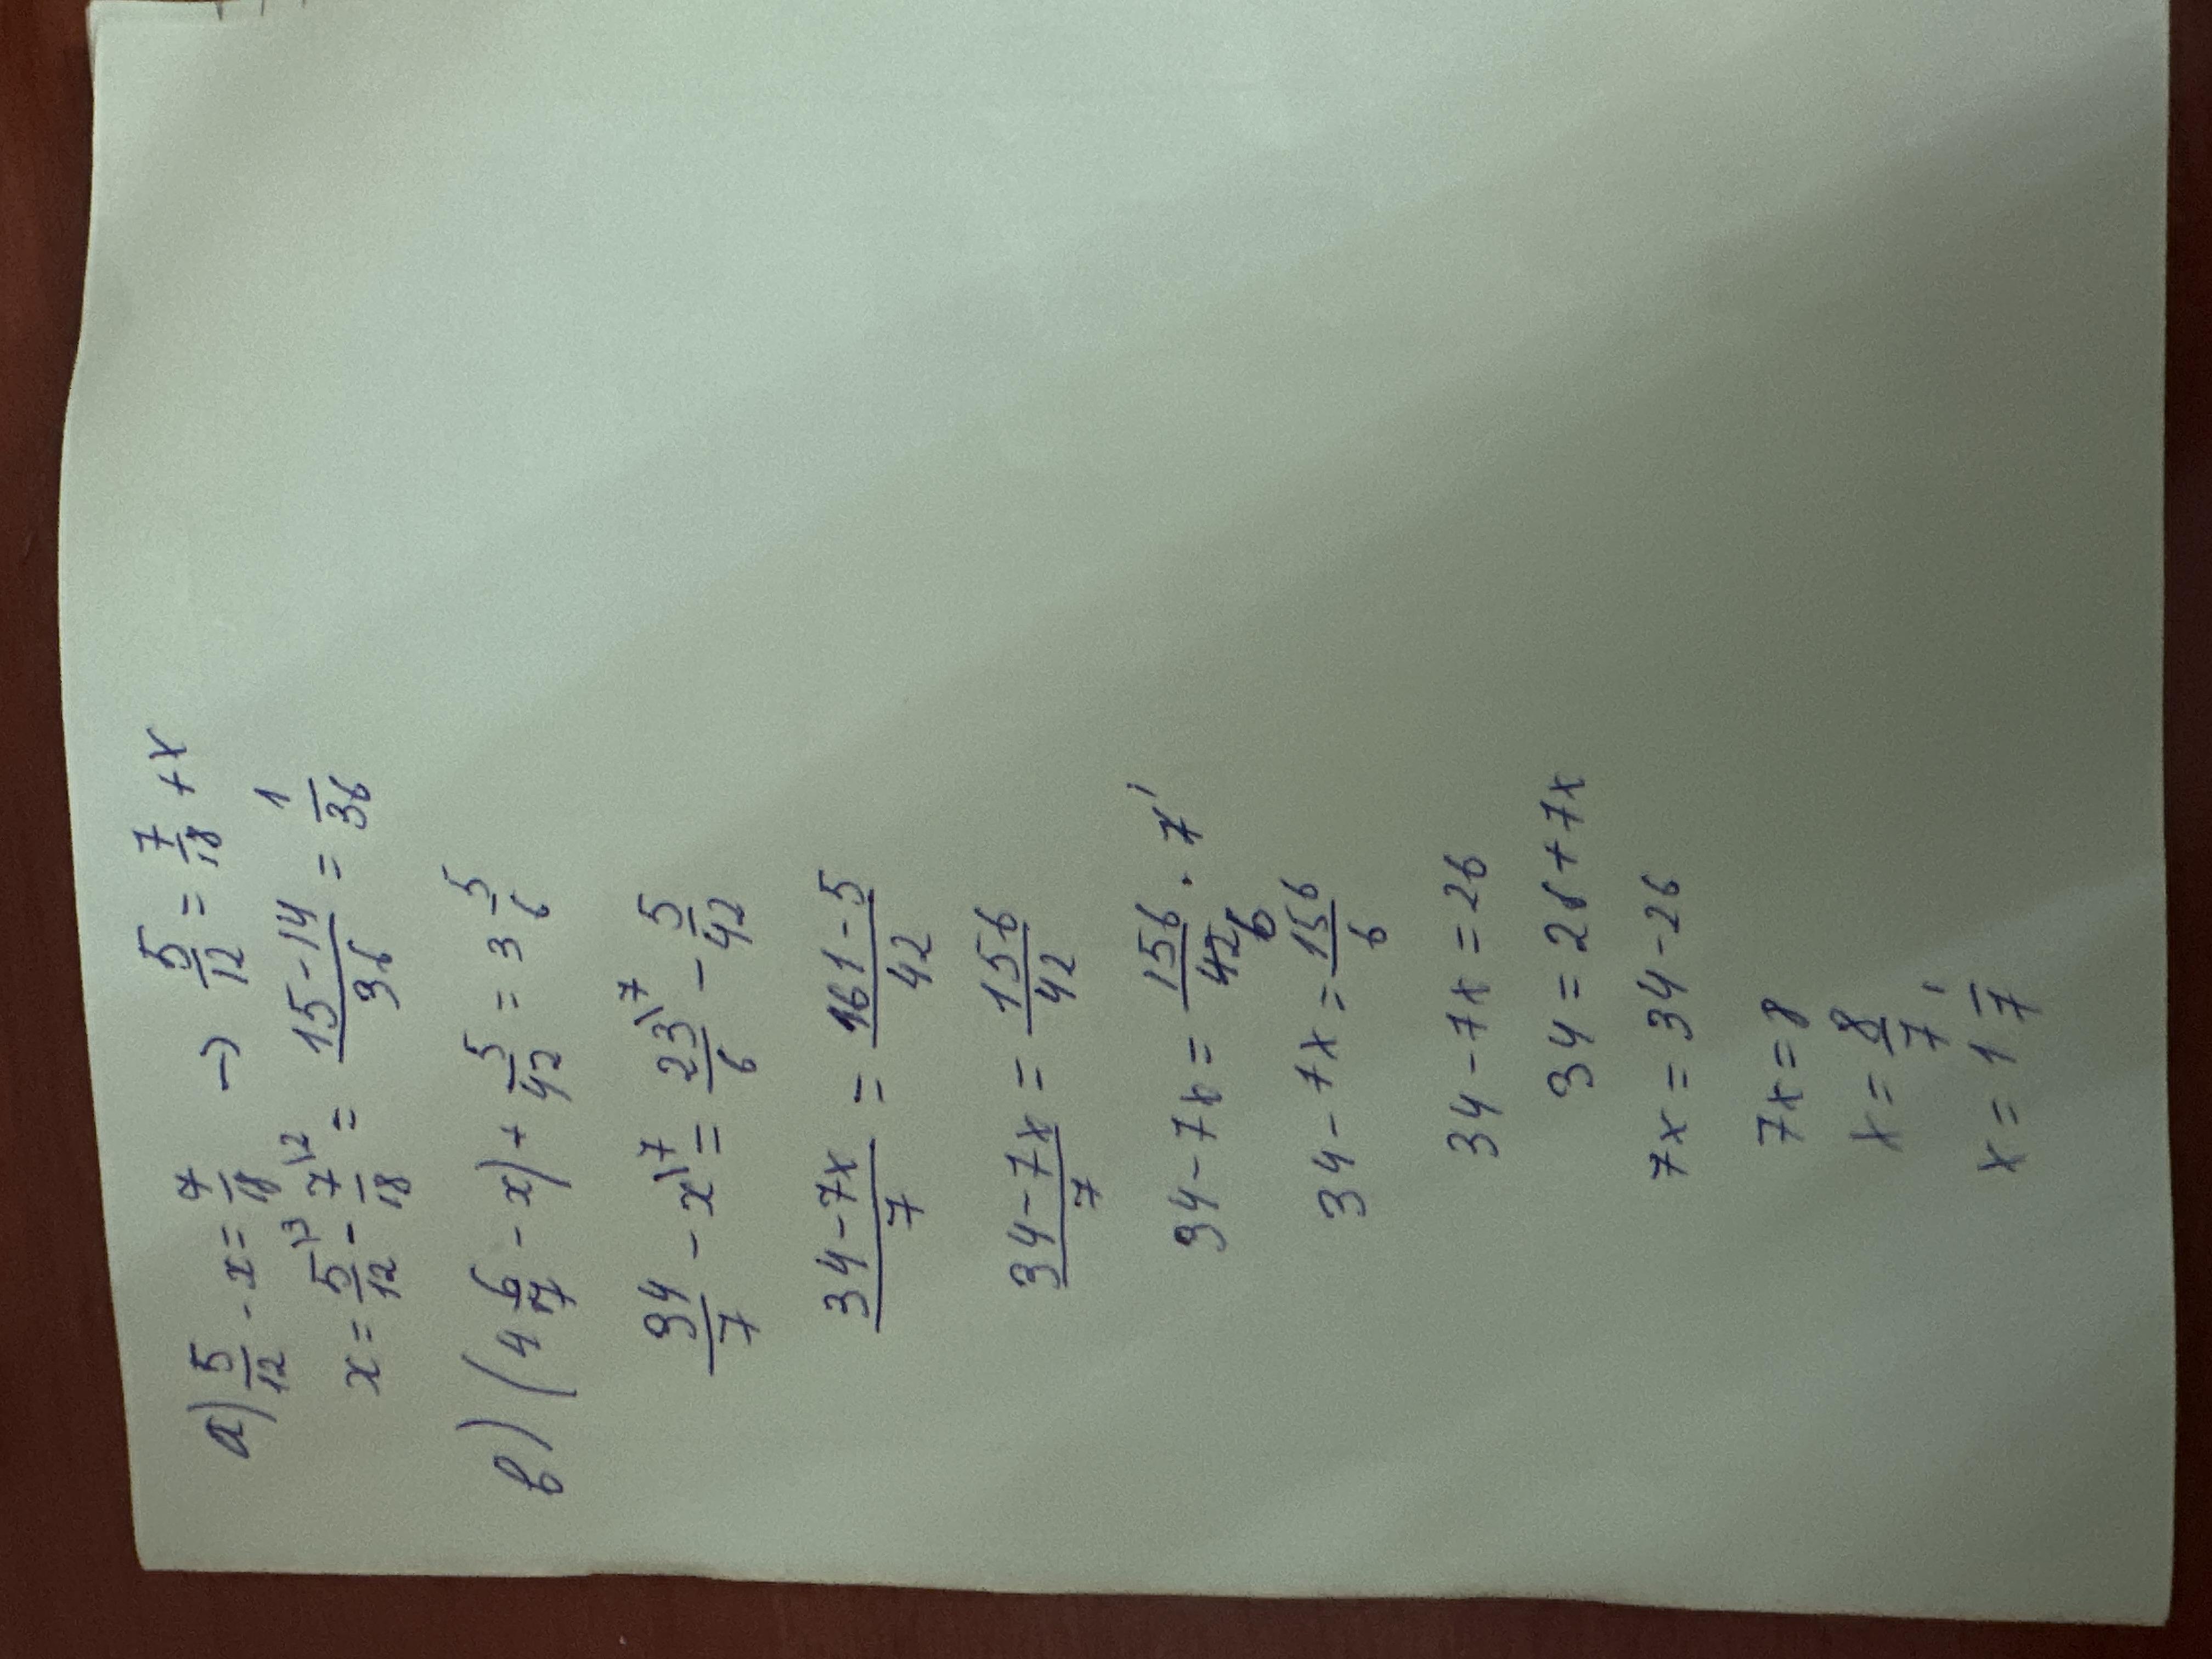 а) 5/12 - x = 7/18 → 5/12 = 7/18 + x
x = 5/12 \3 - 7/18 \2 = = 15-14/36 = 1/36
в) (4 6/7 - x) + 5/42 = 3 5/6
34/7 - x \7 = 23/6 \7 - 5/42
34-7x/7 = 161-5/42
34-7x/7 = 156/42
34-7x = 156/42 6 · 7 1
34-7x = 156/6
34-7x = 26
34 = 26+7x
7x = 34-26
7x = 8
x = 8/7
x = 1 1/7